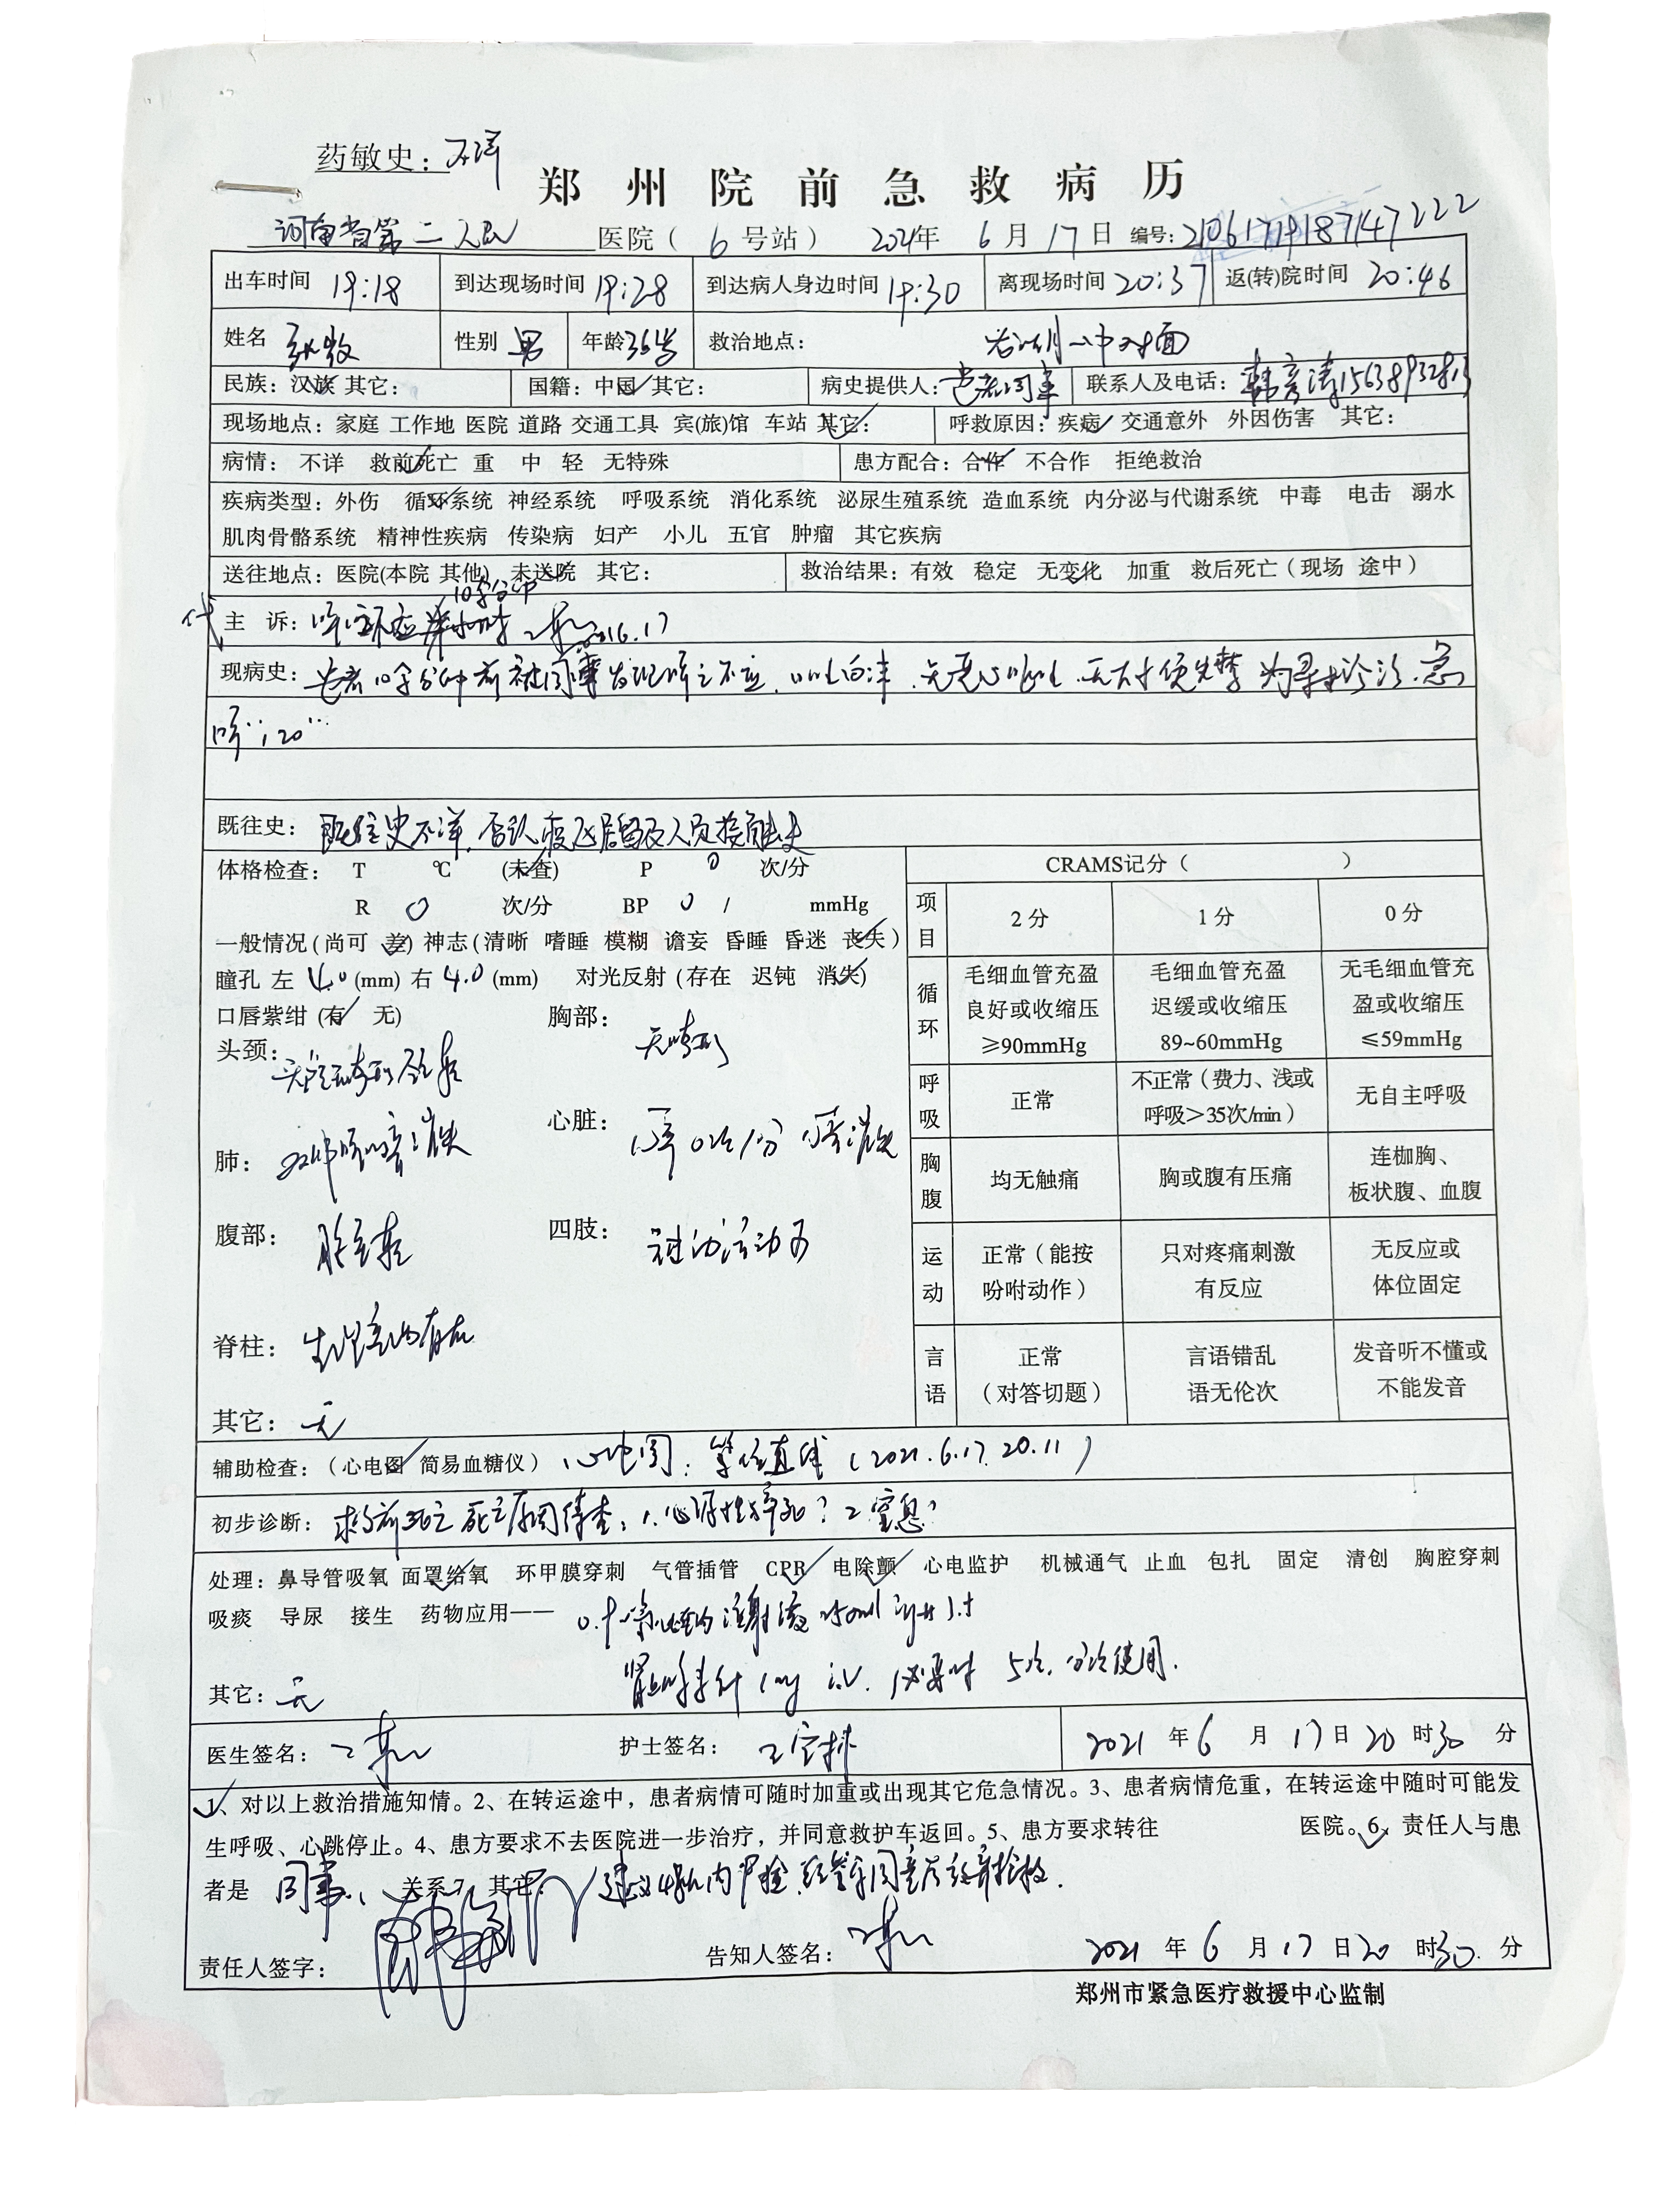 药敏史：不详
郑州院前急救病历
河南省第二人民医院（6号站） 2021年6月17日 编号：
出车时间 19:18 到达现场时间 19:28 到达病人身边时间 19:30 离现场时间 20:37 返(转)院时间 20:46
姓名 性别 男 年龄 36岁 救治地点： 中对面
民族：汉族 其它： 国籍：中国 其它： 病史提供人：患者同事 联系人及电话：
现场地点：家庭 工作地 医院 道路 交通工具 宾(旅)馆 车站 其它： 呼救原因：疾病 交通意外 外因伤害 其它：
病情：不详 救前死亡 重 中 轻 无特殊 患方配合：合作 不合作 拒绝救治
疾病类型：外伤 循环系统 神经系统 呼吸系统 消化系统 泌尿生殖系统 造血系统 内分泌与代谢系统 中毒 电击 溺水
肌肉骨骼系统 精神性疾病 传染病 妇产 小儿 五官 肿瘤 其它疾病
送往地点：医院(本院 其他) 未送院 其它： 救治结果：有效 稳定 无变化 加重 救后死亡（现场 途中）
10余分钟
代主诉：呼之不应
现病史：患者10余分钟前被同事发现呼之不应，口吐白沫，无恶心呕吐，无大小便失禁，为寻求诊治，急
呼“120”
既往史：既往史不详，否认疫区居留及人员接触史
体格检查： T ℃ (未查) P 0 次/分 CRAMS记分（ ）
R 0 次/分 BP 0 / mmHg 项目 2分 1分 0分
一般情况(尚可 差) 神志(清晰 嗜睡 模糊 谵妄 昏睡 昏迷 丧失)
瞳孔 左 4.0 (mm) 右 4.0 (mm) 对光反射(存在 迟钝 消失) 循环 毛细血管充盈良好或收缩压≥90mmHg 毛细血管充盈迟缓或收缩压89~60mmHg 无毛细血管充盈或收缩压≤59mmHg
口唇紫绀(有 无) 胸部：无畸形
头颈：头颅无畸形 呼吸 正常 不正常（费力、浅或呼吸＞35次/min） 无自主呼吸
肺：双肺呼吸音消失 心脏：心率0次/分 心音消失 胸腹 均无触痛 胸或腹有压痛 连枷胸、板状腹、血腹
腹部：腹部柔软 四肢：无自主活动 运动 正常（能按吩咐动作） 只对疼痛刺激有反应 无反应或体位固定
脊柱：生理弯曲存在 言语 正常（对答切题） 言语错乱语无伦次 发音听不懂或不能发音
其它：无
辅助检查：（心电图 简易血糖仪） 心电图：等位直线（2021.6.17 20:11）
初步诊断：救前死亡 死亡原因待查：1.心源性猝死？2.窒息？
处理：鼻导管吸氧 面罩给氧 环甲膜穿刺 气管插管 CPR 电除颤 心电监护 机械通气 止血 包扎 固定 清创 胸腔穿刺
吸痰 导尿 接生 药物应用—— 0.9%氯化钠注射液 250ml ivgtt st
肾上腺素针 1mg i.v. 必要时 5次，分次使用．
其它：无
医生签名： 护士签名： 2021年6月17日20时30分
1、对以上救治措施知情。2、在转运途中，患者病情可随时加重或出现其它危急情况。3、患者病情危重，在转运途中随时可能发
生呼吸、心跳停止。4、患方要求不去医院进一步治疗，并同意救护车返回。5、患方要求转往 医院。6、责任人与患
者是 同事 关系7、其它：建议48h内尸检，
责任人签字： 告知人签名： 2021年6月17日20时30分
郑州市紧急医疗救援中心监制